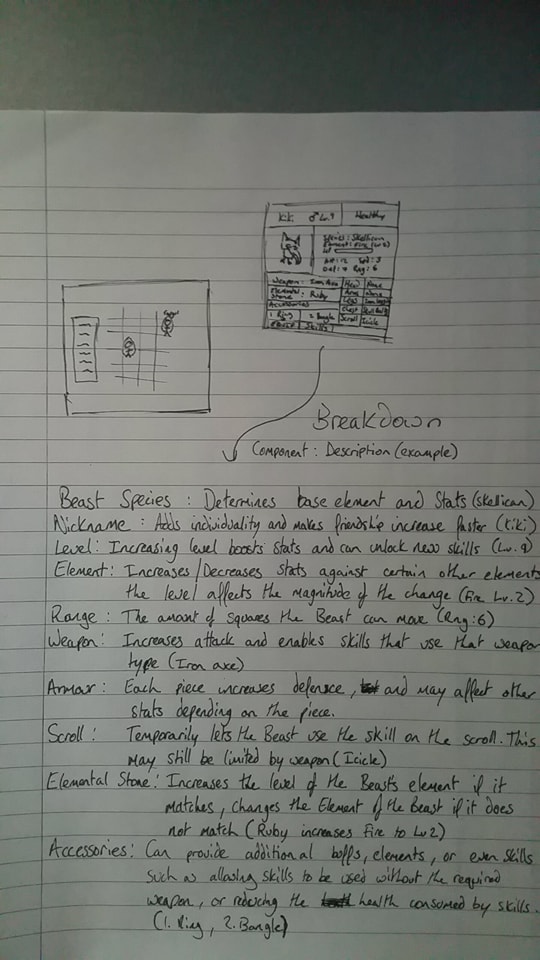 Kiki ♂ Lv.9 Healthy
Species: Skellican
Element: Fire (Lv 2)
Att: 12 Spd: 3
Def: 9 Rng: 6
Weapon: Iron Axe Head None
Elemental Stone: Ruby Arms None
Accessories Legs
1. Ring 2. Bangle Chest
Skills Scroll Icicle
Breakdown
Component: Description (example)
Beast Species: Determines base element and Stats (skellican)
Nickname: Adds individuality and makes friendship increase faster (Kiki)
Level: Increasing level boosts stats and can unlock new skills (Lv.9)
Element: Increases/Decreases stats against certain other elements
the level affects the magnitude of the change (Fire Lv.2)
Range: The amount of squares the Beast can move (Rng:6)
Weapon: Increases attack and enables skills that use that weapon
type (Iron axe)
Armour: Each piece increases defence, and may affect other
stats depending on the piece.
Scroll: Temporarily lets the Beast use the skill on the scroll. This
may still be limited by weapon (Icicle)
Elemental Stone: Increases the level of the Beasts element if it
matches, changes the Element of the Beast if it does
not match (Ruby increases Fire to Lv2)
Accessories: Can provide additional buffs, elements, or even skills
such as allowing skills to be used without the required
weapon, or reducing the health consumed by skills.
(1. Ring, 2. Bangle)